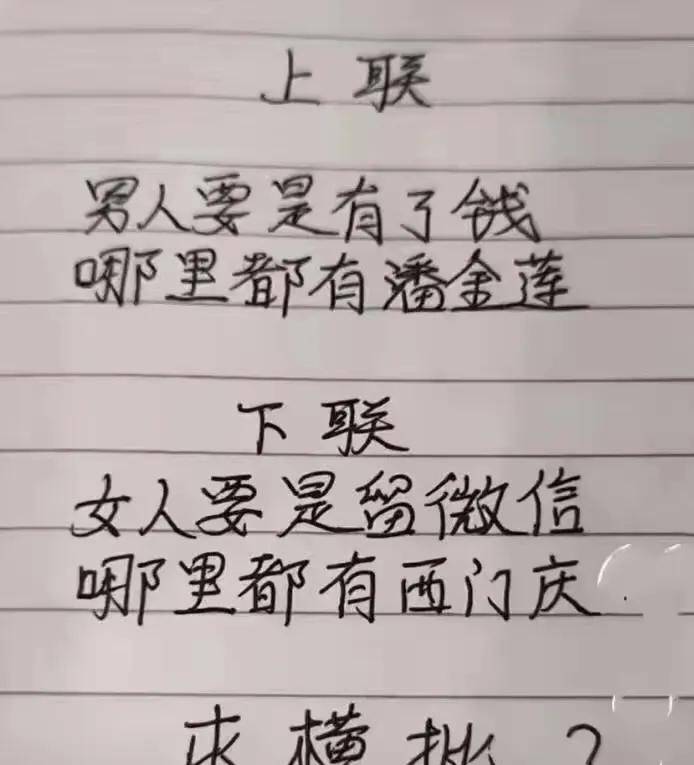 上联
男人要是有了钱
哪里都有潘金莲
下联
女人要是留微信
哪里都有西门庆.
求横批?